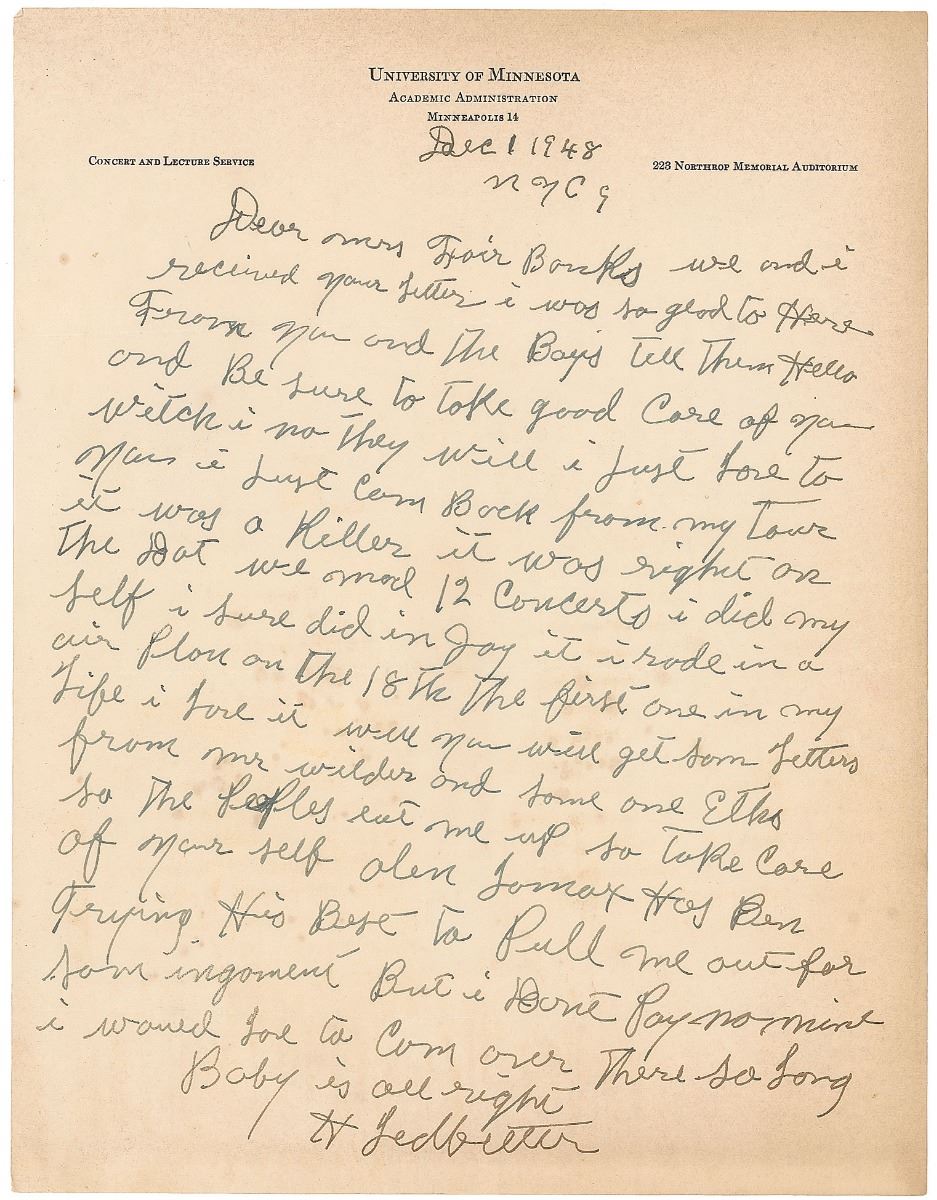 UNIVERSITY OF MINNESOTA
ACADEMIC ADMINISTRATION
MINNEAPOLIS 14
CONCERT AND LECTURE SERVICE
223 NORTHROP MEMORIAL AUDITORIUM
Dec 1 1948
N Y C 9
Dear mrs Fair Banks we and i
received your Letter i was so glad to Here
From you and the Boys tell them Hello
and Be sure to take good Care of you
witch i no they will i Just Love to
you i Just Com Back from my tour
it was a Killer it was right on
the Dot we mad 12 Concerts i did my
self i sure did in Joy it i rode in a
air Plan on the 18th the first one in my
Life i Love it well you will get som Letters
from mr wilder and some one Elks
so the Peoples eat me up so take Care
of your self alen Lomax Has Ben
Trying His Best to Pull me out for
som ingoment But i Dont Pay no mine
i woued Love to Com over there so Long
Baby is all right
H Ledbetter